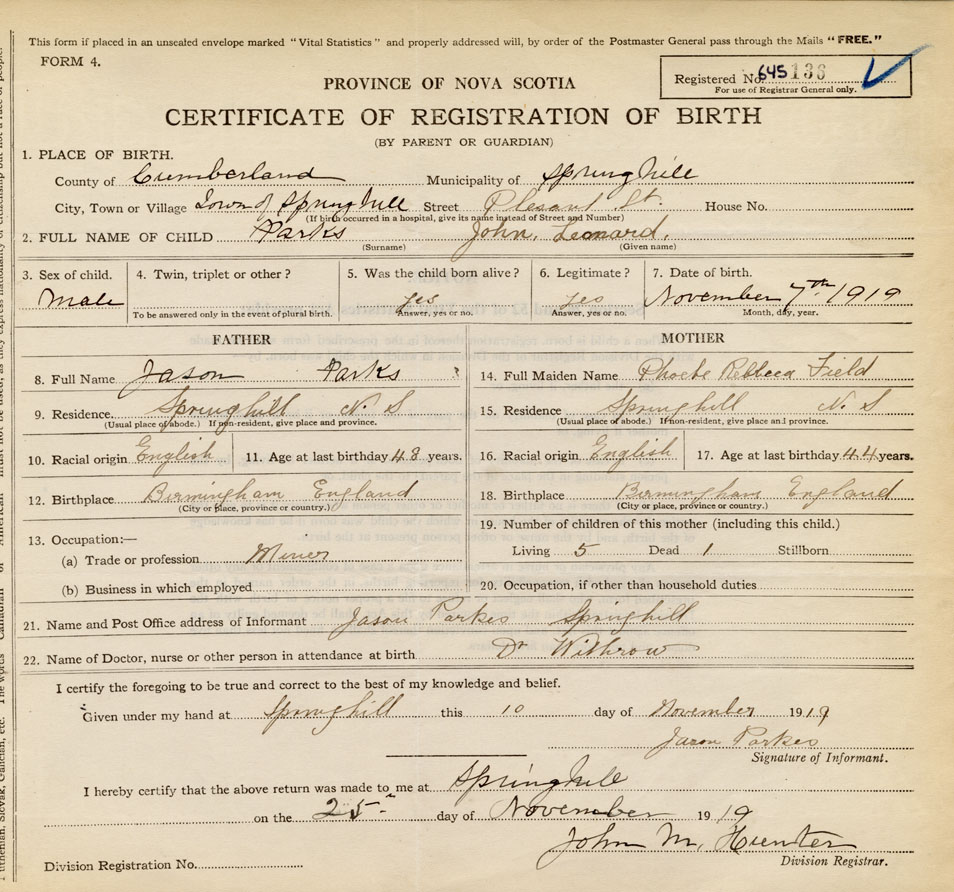 This form if placed in an unsealed envelope marked "Vital Statistics" and properly addressed will, by order of the Postmaster General pass through the Mails "FREE."
FORM 4.
Registered No. 645136
For use of Registrar General only.
PROVINCE OF NOVA SCOTIA
CERTIFICATE OF REGISTRATION OF BIRTH
(BY PARENT OR GUARDIAN)
1. PLACE OF BIRTH.
County of Cumberland Municipality of Springhill
City, Town or Village Town of Springhill Street Plesant St. House No.
(If birth occurred in a hospital, give its name instead of Street and Number)
2. FULL NAME OF CHILD Parks John, Leonard,
(Surname) (Given name)
3. Sex of child. 4. Twin, triplet or other? 5. Was the child born alive? 6. Legitimate? 7. Date of birth.
Male yes yes November 7th 1919
To be answered only in the event of plural birth. Answer, yes or no. Answer, yes or no. Month, day, year.
FATHER MOTHER
8. Full Name Jason Parks 14. Full Maiden Name Phoebe Rebbeca Field
9. Residence. Springhill N. S 15. Residence Springhill N. S
(Usual place of abode.) If non-resident, give place and province. (Usual place of abode.) If non-resident, give place and province.
10. Racial origin English 11. Age at last birthday 48 years. 16. Racial origin English 17. Age at last birthday 44 years.
12. Birthplace Birmingham England 18. Birthplace Birmingham England
(City or place, province or country.) (City or place, province or country.)
13. Occupation:— 19. Number of children of this mother (including this child.)
(a) Trade or profession Miner Living 5 Dead 1 Stillborn
(b) Business in which employed 20. Occupation, if other than household duties
21. Name and Post Office address of Informant Jason Parkes Springhill
22. Name of Doctor, nurse or other person in attendance at birth Dr Withrow
I certify the foregoing to be true and correct to the best of my knowledge and belief.
Given under my hand at Springhill this 10 day of November 1919
Jason Parkes
Signature of Informant.
I hereby certify that the above return was made to me at Springhill
on the 25 day of November 1919
John M. Hunter
Division Registrar.
Division Registration No.